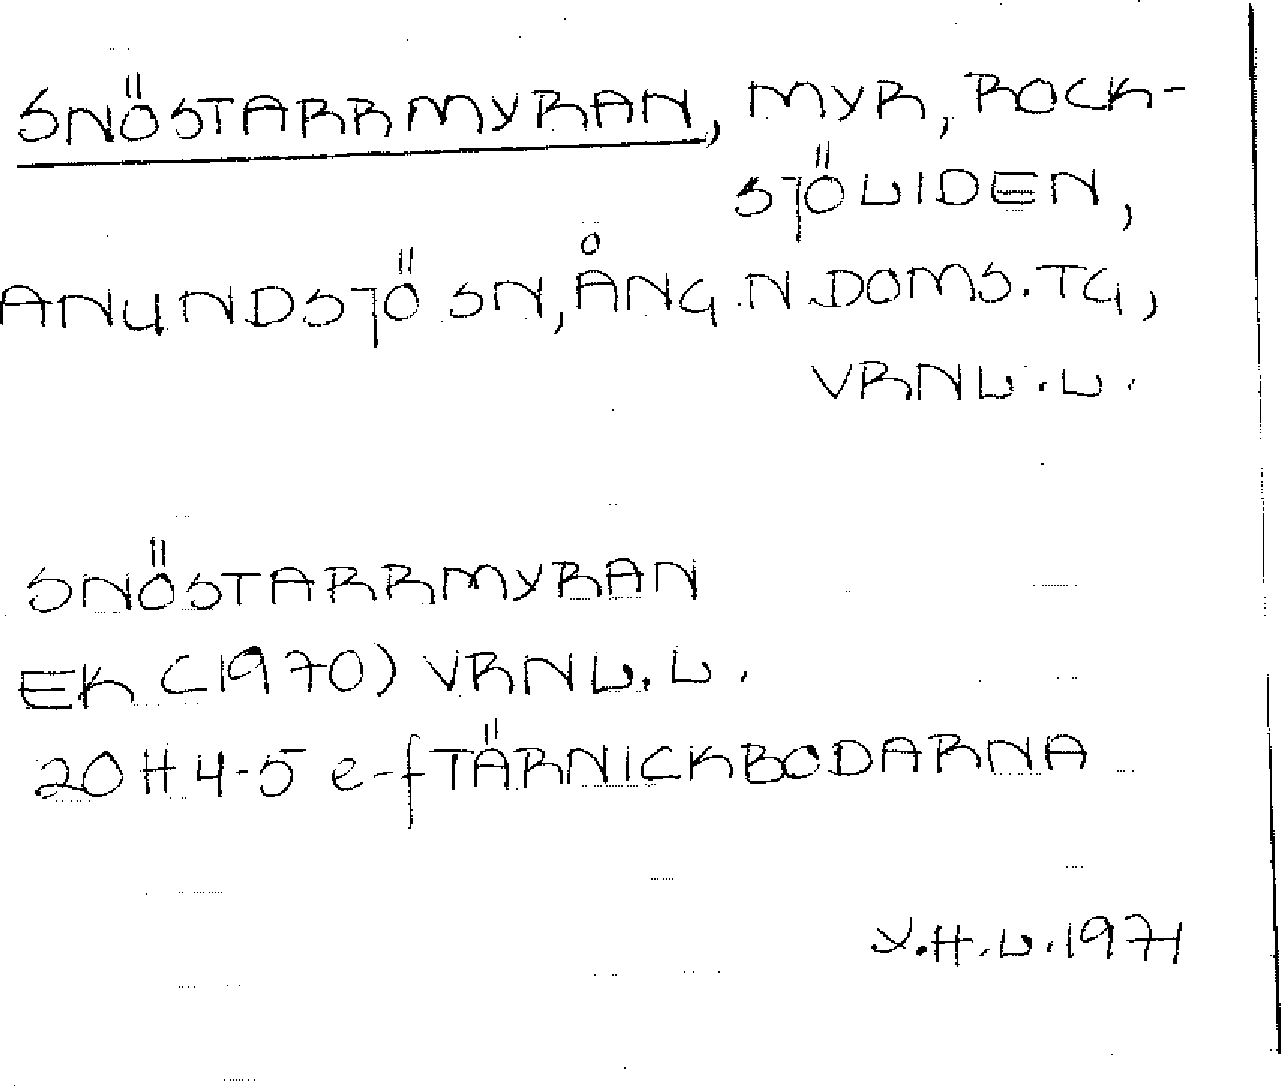 SNÖSTARRMYRAN, MYR, ROCK-
SJÖLIDEN,
ANUNDSJÖ SN, ÅNG. N. DOMS. TG,
VRNL. L.
SNÖSTARRMYRAN
EK (1970) VRNL. L.
20H 4-5 e-f TÄRNICKBODARNA
Y.H.L. 1971